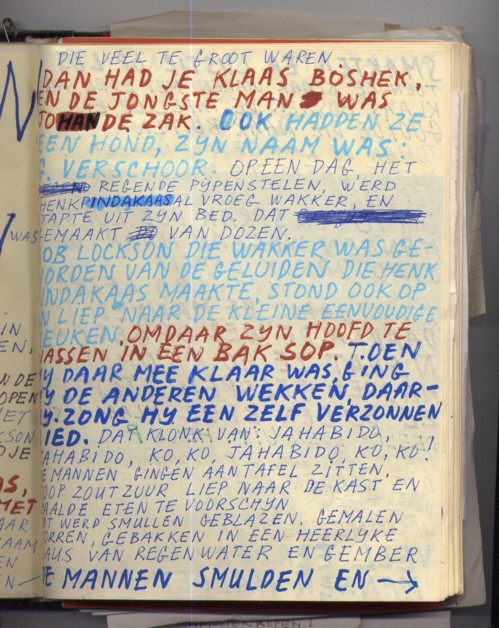 DIE VEEL TE GROOT WAREN
DAN HAD JE KLAAS BOSHEK,
EN DE JONGSTE MAN WAS
JOHAN DE ZAK. OOK HADDEN ZE
EEN HOND, ZYN NAAM WAS:
VERSCHOOR. OP EEN DAG, HET
REGENDE PYPENSTELEN, WERD
HENK PINDAKAAS AL VROEG WAKKER, EN
STAPTE UIT ZYN BED. DAT
WAS GEMAAKT VAN DOZEN.
OB LOCKSON DIE WAKKER WAS GE-
WORDEN VAN DE GELUIDEN DIE HENK
PINDAKAAS MAAKTE, STOND OOK OP
EN LIEP NAAR DE KLEINE EENVOUDIGE
KEUKEN, OM DAAR ZYN HOOFD TE
WASSEN IN EEN BAK SOP. TOEN
HY DAAR MEE KLAAR WAS, GING
HY DE ANDEREN WEKKEN, DAAR-
ZONG HY EEN ZELF VERZONNEN
LIED. DAT KLONK VAN: JAHABIDO,
JAHABIDO, KO, KO, JAHABIDO, KO, KO!
DE MANNEN GINGEN AAN TAFEL ZITTEN,
JOOP ZOUTZUUR LIEP NAAR DE KAST EN
HAALDE ETEN TE VOORSCHYN
WERD SMULLEN GEBLAZEN. GEMALEN
TORREN, GEBAKKEN IN EEN HEERLYKE
SAUS VAN REGENWATER EN GEMBER
DE MANNEN SMULDEN EN →